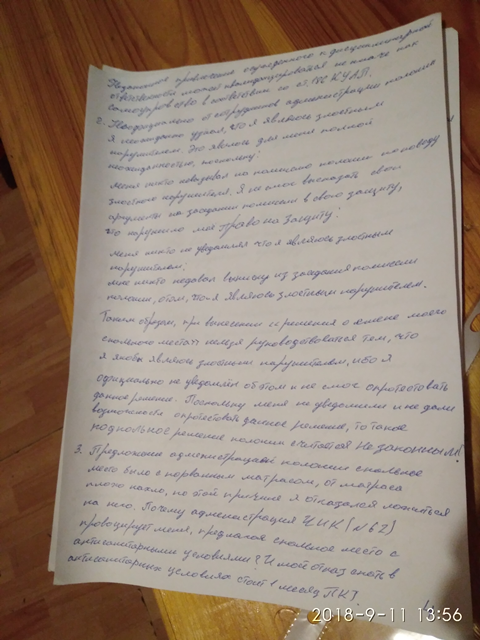 Незаконное привлечение осужденного к дисциплинарной
ответственности может квалифицироваться не иначе как
самоуправство в соответствии со ст. 186 КУАП.
2. Неофициально от сотрудников администрации колонии
я неожиданно узнал, что я являюсь злостным
нарушителем. Это явилось для меня полной
неожиданностью, поскольку:
меня никто не вызывал на комиссию колонии по поводу
злостного нарушителя. Я не смог высказать свои
аргументы на заседании комиссии в свою защиту,
что нарушило мое право на защиту;
меня никто не уведомлял что я являюсь злостным
нарушителем;
мне никто не давал выписку из заседания комиссии
колонии, о том, что я являюсь злостным нарушителем.
Таким образом, при вынесении решения о смене моего
спального места нельзя руководствоваться тем, что
я якобы являюсь злостным нарушителем, ибо я
официально не уведомлён об этом и не смог опротестовать
данное решение. Поскольку меня не уведомили и не дали
возможности опротестовать данное решение, то такое
подпольное решение колонии считается незаконным!
3. Предложенное администрацией колонии спальное
место было с порванным матрасом, от матраса
плохо пахло, по этой причине я отказался ложиться
на него. Почему администрация ИК (№62)
провоцирует меня, предлагая спальное место с
антисанитарными условиями? И мой отказ спать в
антисанитарных условиях стоит 1 месяц ПКТ?
2018-9-11 13:56